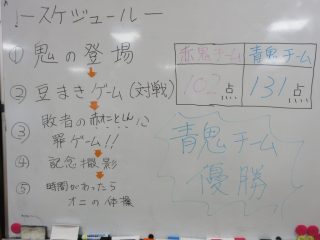 ースケジュールー
① 鬼の登場
② 豆まきゲーム(対戦)
③ 敗者の
罪ゲーム!!
④ 記念撮影
⑤ 時間があったら
オニの体操
赤鬼チーム 青鬼チーム
102点 131点
青鬼チーム
優勝